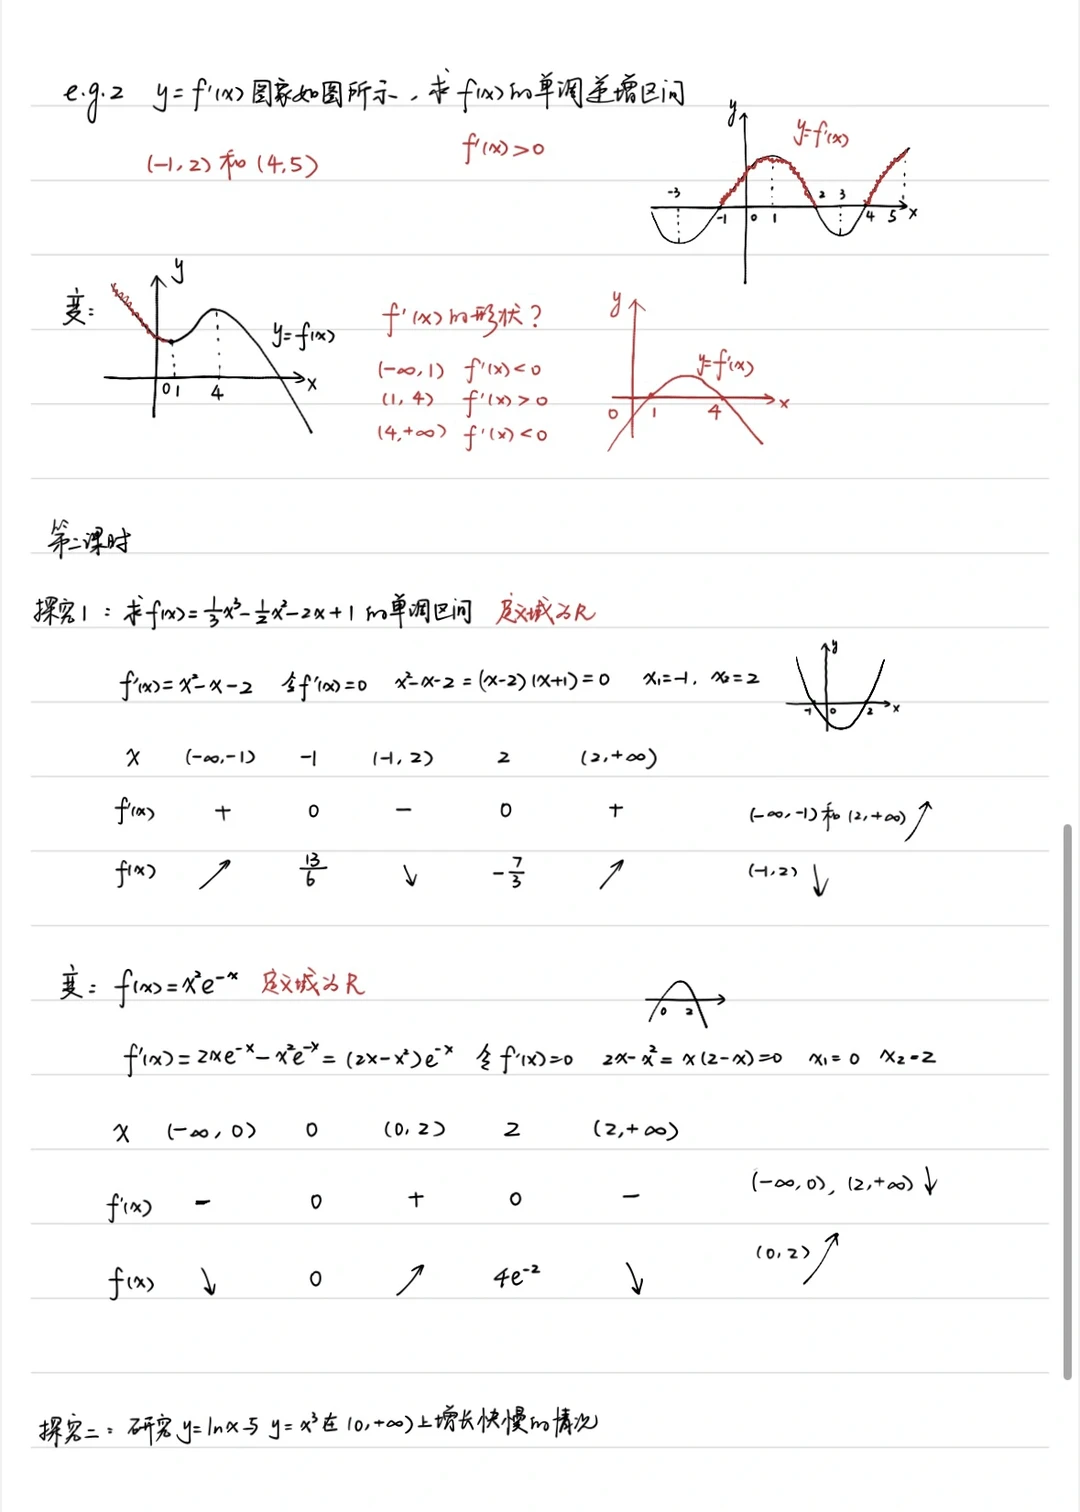 e.g.2 y=f'(x)图象如图所示，求f(x)的单调递增区间
(-1,2)和(4,5) f'(x)>0
y y=f'(x)
-3 -1 0 1 2 3 4 5 x
变： y y=f(x) 0 1 4 x
f'(x)的形状？
(-∞,1) f'(x)<0
(1,4) f'(x)>0
(4,+∞) f'(x)<0
y y=f'(x) 0 1 4 x
第二课时
探究1：求f(x)=1/3x³-1/2x²-2x+1的单调区间 定义域为R
f'(x)=x²-x-2 令f'(x)=0 x²-x-2=(x-2)(x+1)=0 x₁=-1, x₂=2
y -1 0 2 x
x (-∞,-1) -1 (-1,2) 2 (2,+∞)
f'(x) + 0 - 0 + (-∞,-1)和(2,+∞)↗
f(x) ↗ 13/6 ↘ -7/3 ↗ (-1,2)↘
变：f(x)=x²e⁻ˣ 定义域为R
0 2
f'(x)=2xe⁻ˣ-x²e⁻ˣ=(2x-x²)e⁻ˣ 令f'(x)=0 2x-x²=x(2-x)=0 x₁=0 x₂=2
x (-∞,0) 0 (0,2) 2 (2,+∞)
f'(x) - 0 + 0 - (-∞,0),(2,+∞)↘
f(x) ↘ 0 ↗ 4e⁻² ↘ (0,2)↗
探究二：研究y=lnx与y=x³在(0,+∞)上增长快慢的情况